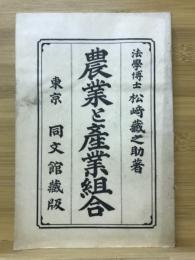 法學博士 松崎藏之助著
農業と產業組合
東京 同文館藏版